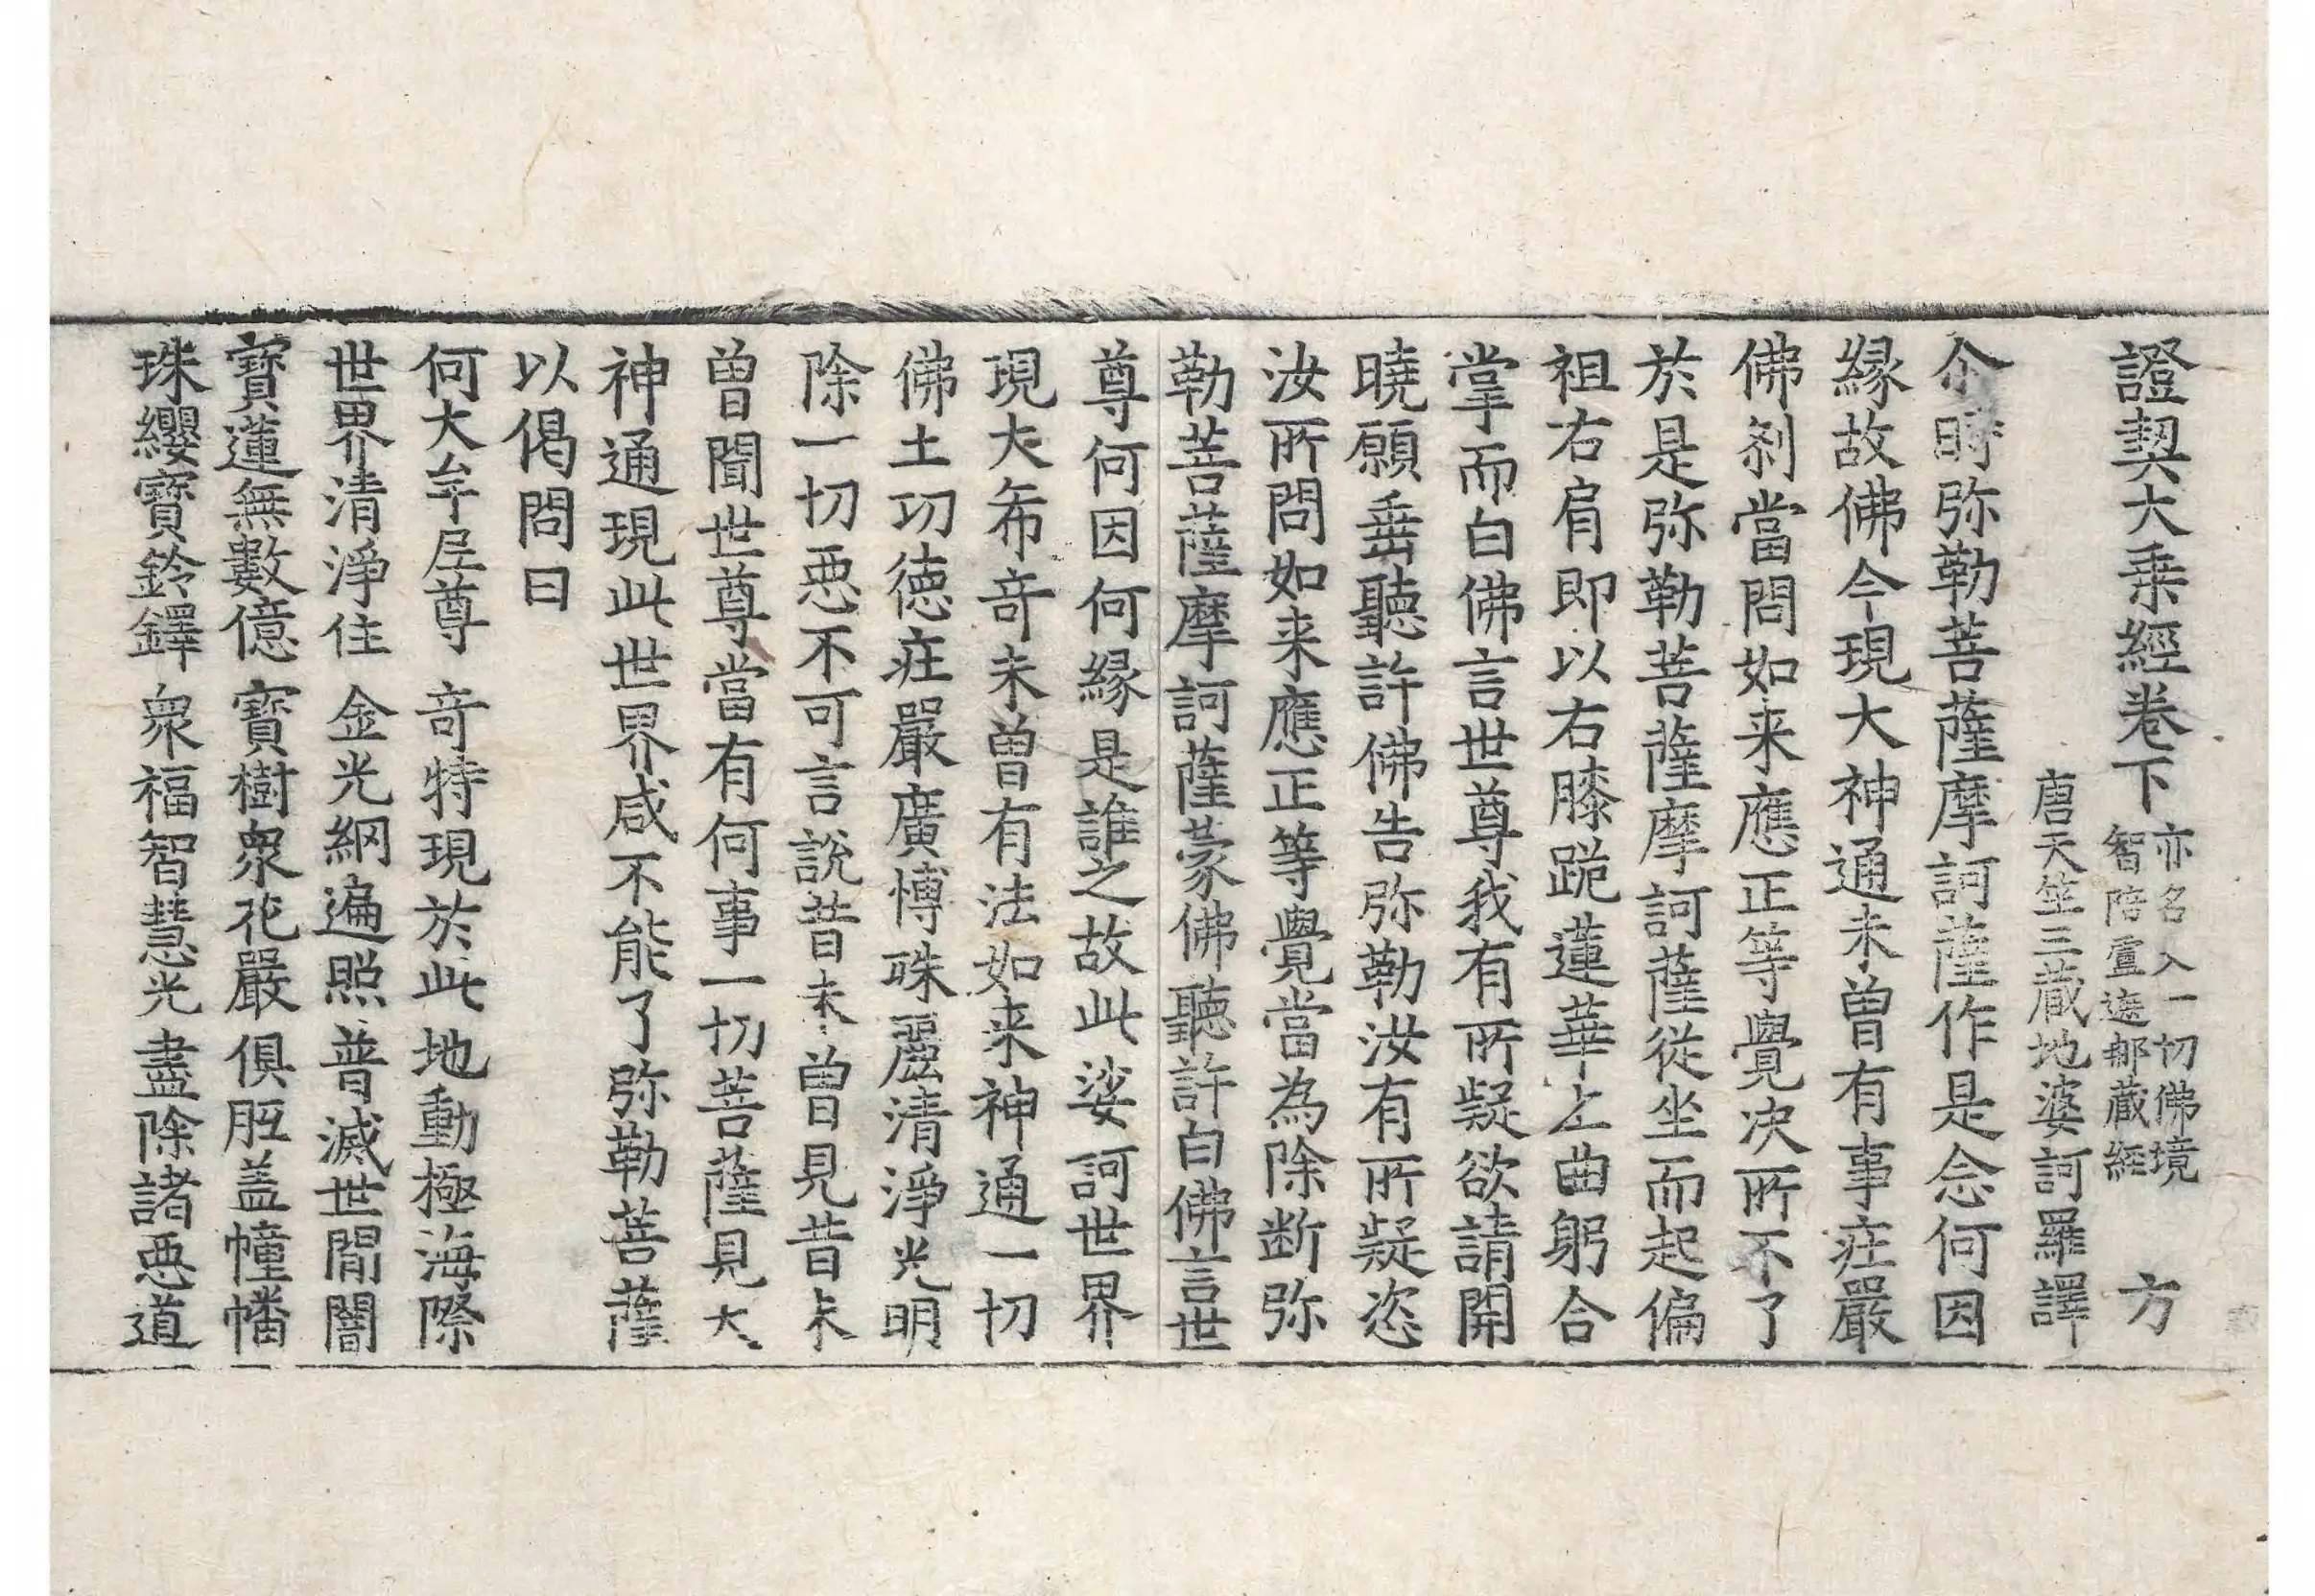 證契大乗經卷下 亦名入一切佛境
智陪盧遮那蔵經 方
唐天竺三蔵地婆訶羅譯
尒時弥勒菩薩摩訶薩作是念何因
縁故佛今現大神通未曽有事莊嚴
佛剎當問如来應正等覺决所不了
於是弥勒菩薩摩訶薩從坐而起偏
袒右肩即以右膝跪蓮華上曲躬合
掌而白佛言世尊我有所疑欲請開
曉願垂聽許佛告弥勒汝有所疑恣
汝所問如来應正等覺當為除断弥
勒菩薩摩訶薩蒙佛聽許白佛言世
尊何因何縁是誰之故此娑訶世界
現大希竒未曽有法如来神通一切
佛土功德莊嚴廣博殊麗清淨光明
除一切惡不可言說昔未曽見昔未
曽聞世尊當有何事一切菩薩見大
神通現此世界咸不能了弥勒菩薩
以偈問曰
何大牟尼尊 竒特現於此 地動極海際
世界清淨住 金光網遍照 普滅世間闇
寶蓮無數億 寶樹衆花嚴 俱胝盖幢幡
珠纓寶鈴鐸 衆福智慧光 盡除諸惡道